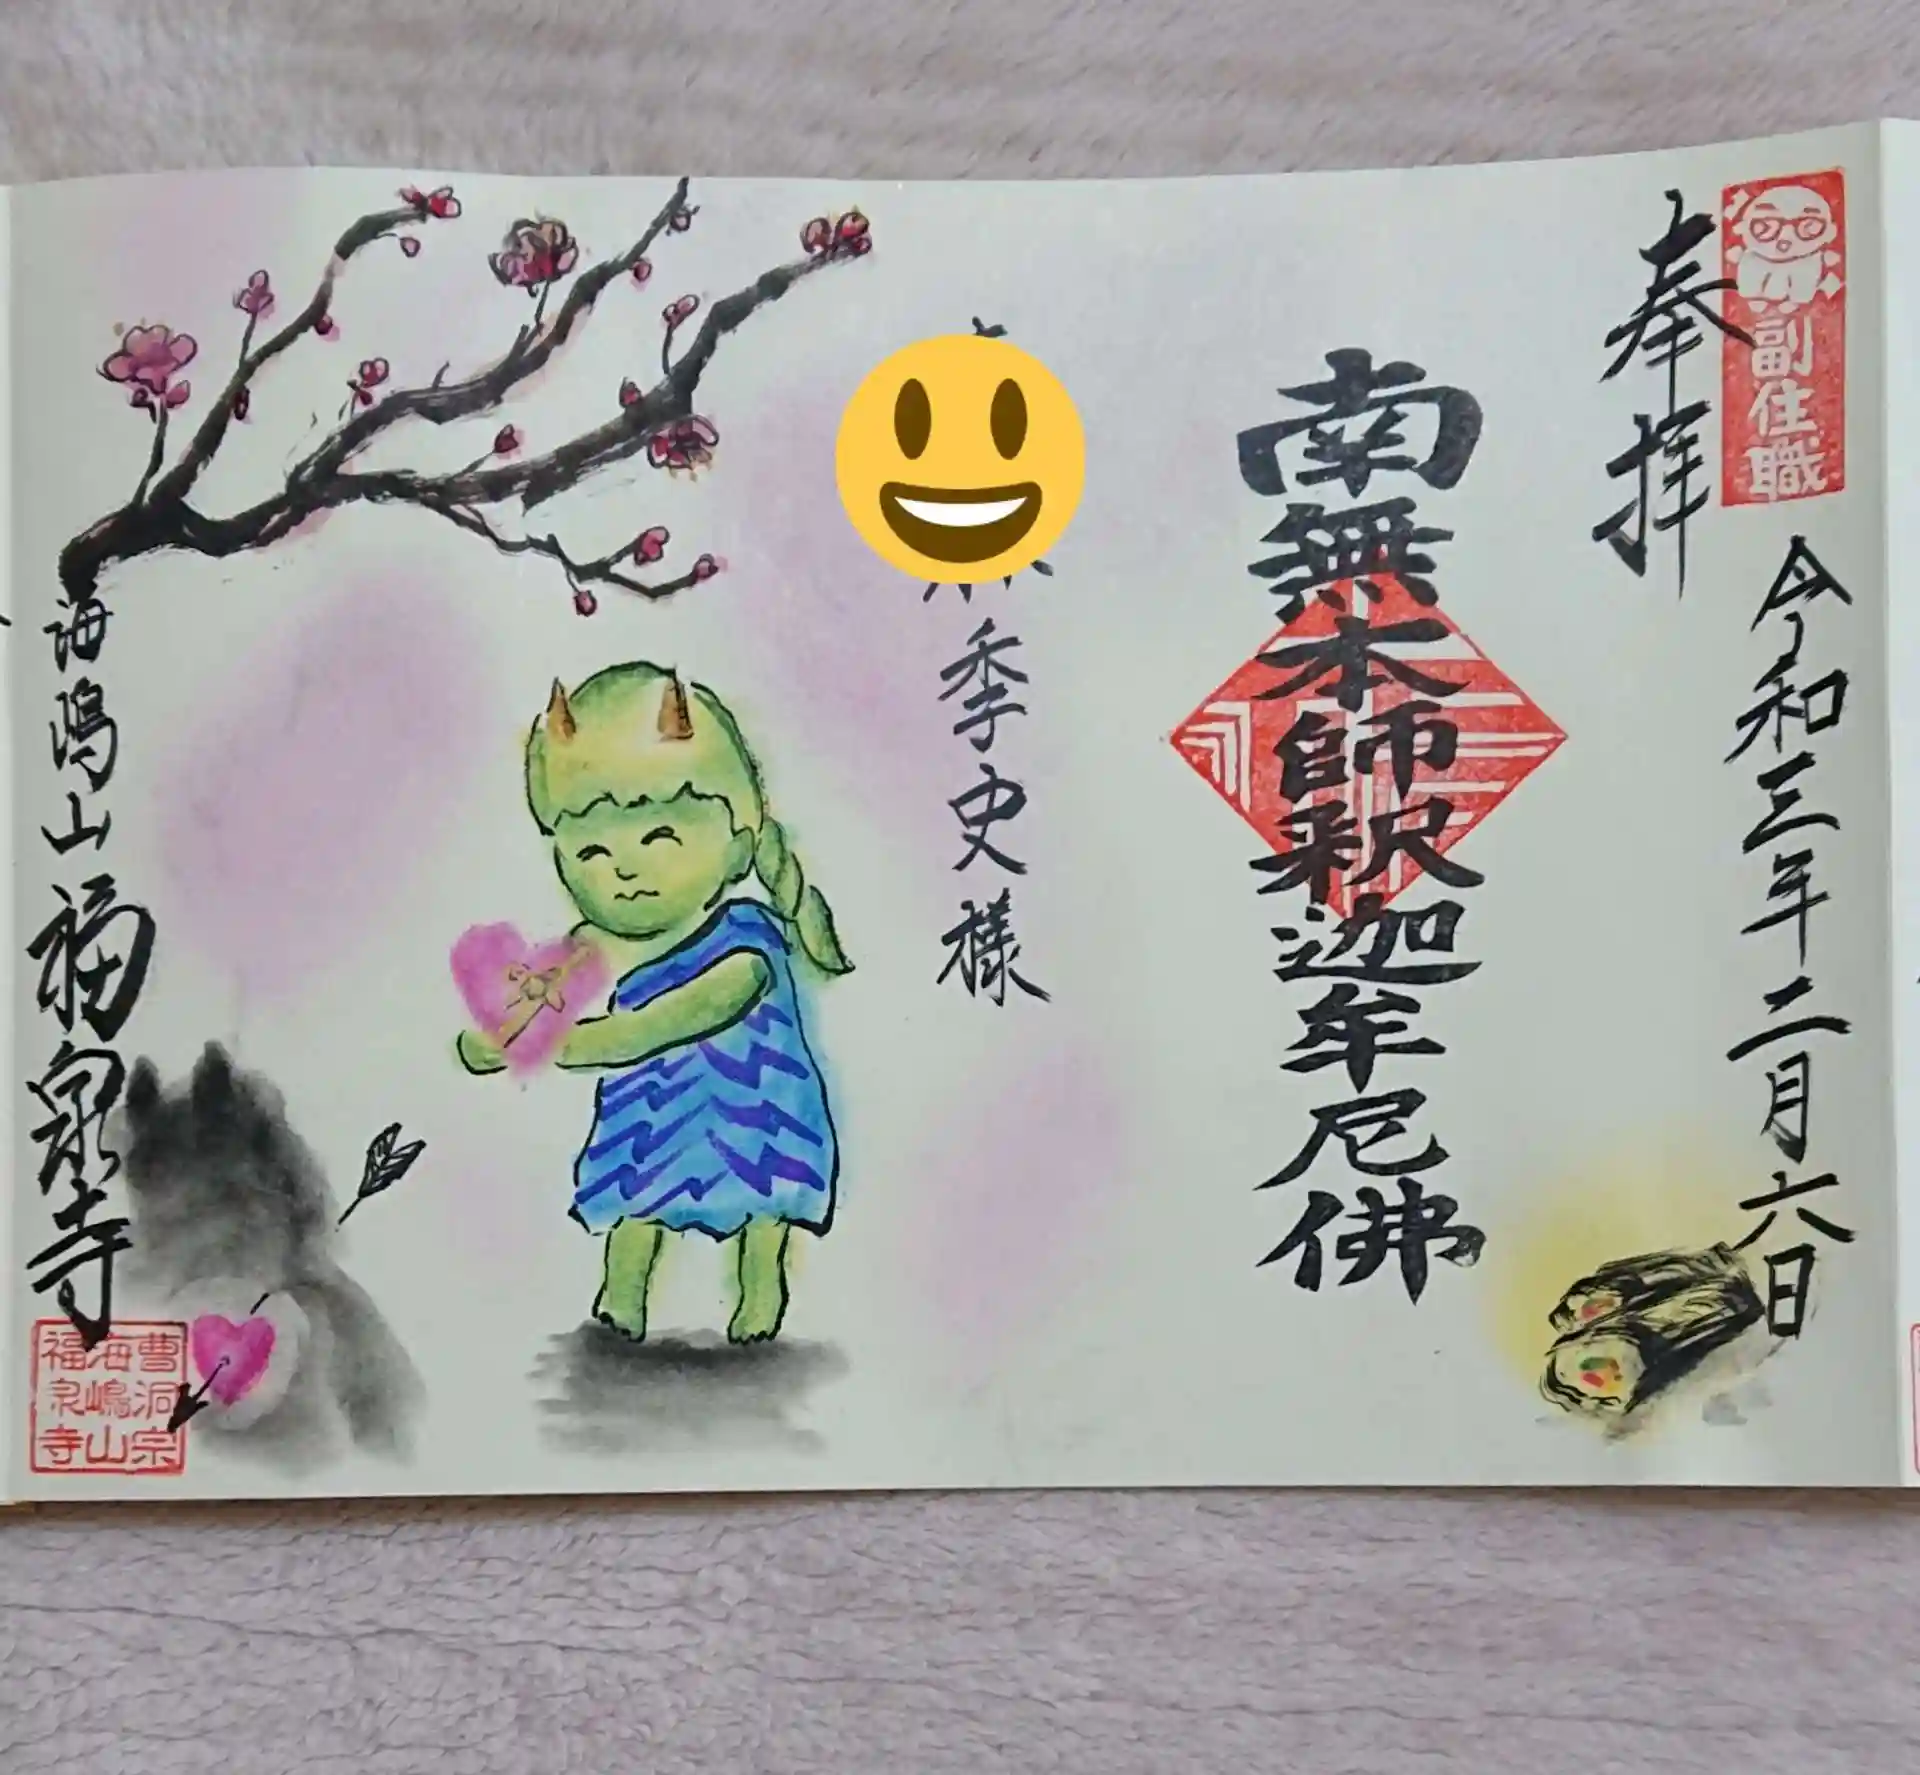 副住職
奉拝
令和三年二月六日
南無本師釈迦牟尼佛
季史様
海嶋山 福泉寺
曹洞宗
海嶋山
福泉寺